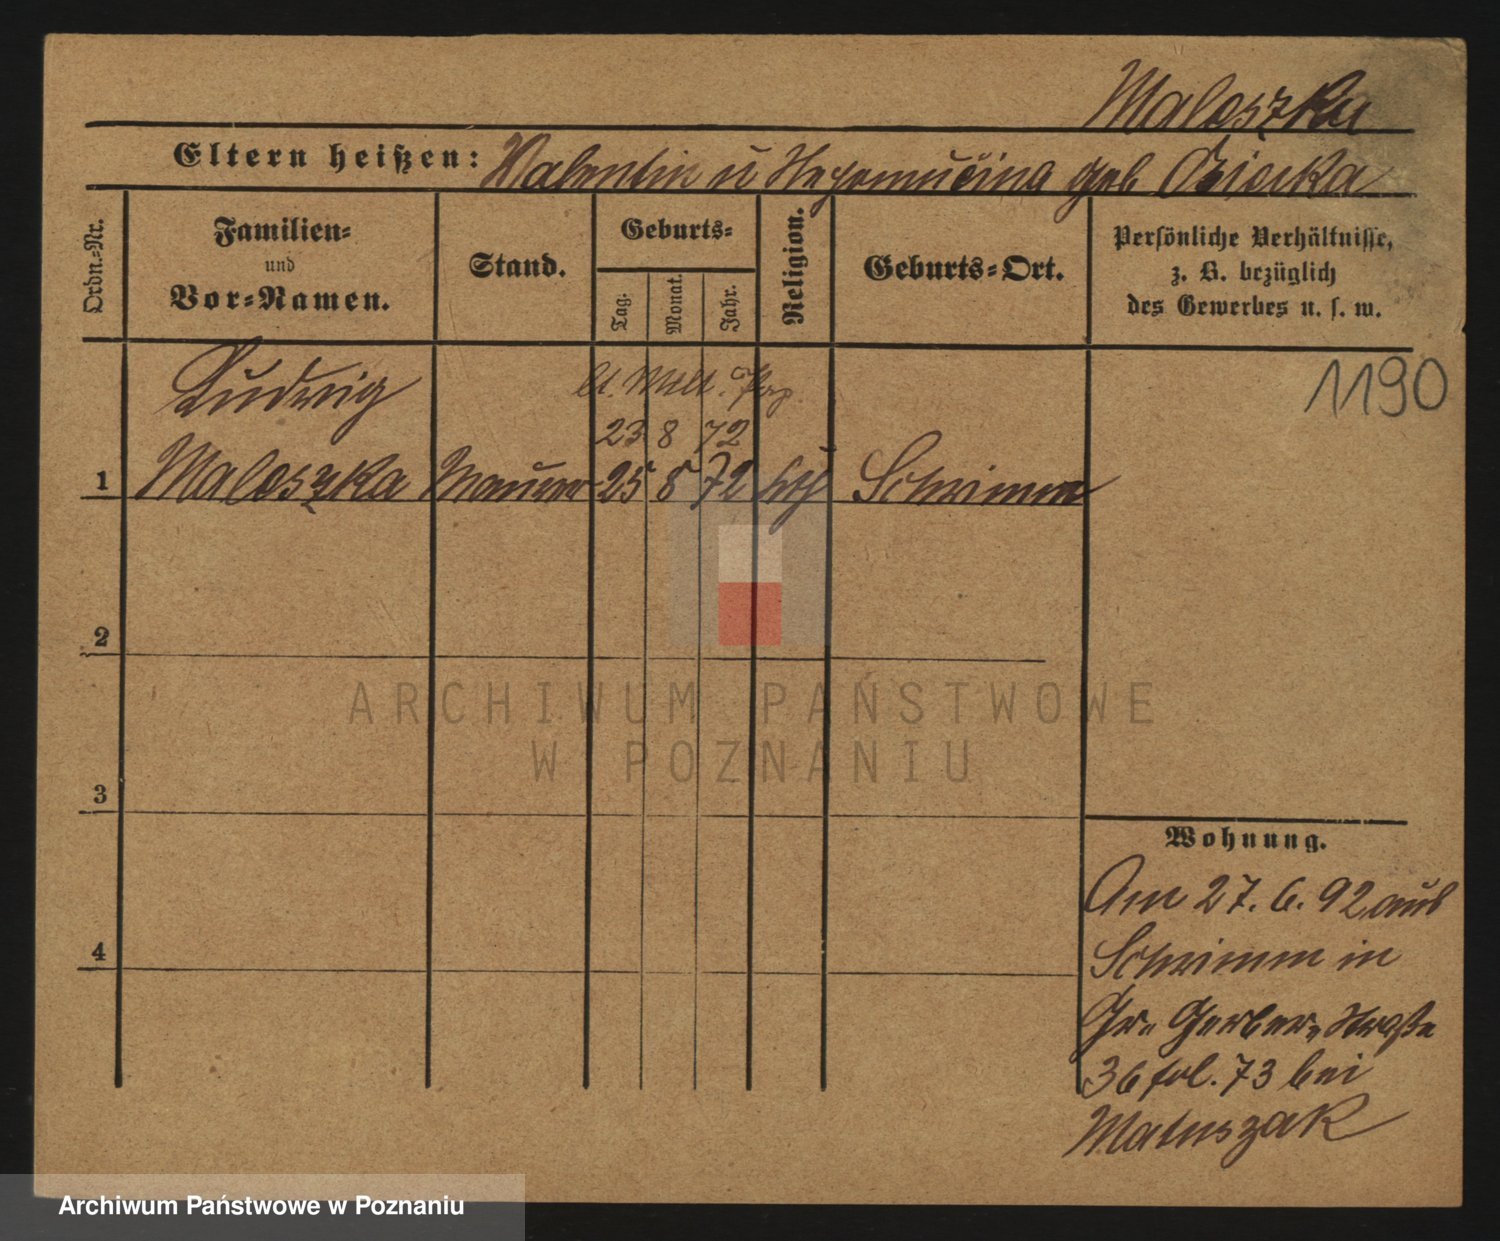 Maloszka
Eltern heißen: Valentin u Nepomucina geb
Ordn.-Nr.
Familien-
und
Vor-Namen.
Stand.
Geburts-
Tag.
Monat.
Jahr.
Religion.
Geburts-Ort.
Persönliche Verhältnisse,
z. B. bezüglich
des Gewerbes u. s. w.
1190
Ludwig
lt. Milt. Pap.
23 8 72
1 Maloszka Maurer 25 8 72 kth Schrimm
2
3
4
Wohnung.
Am 27. 6. 92 aus
Schrimm in
Gr. Gerber-Straße
36 fol. 73 bei
Matuszak
ARCHIWUM PAŃSTWOWE
W POZNANIU
Archiwum Państwowe w Poznaniu